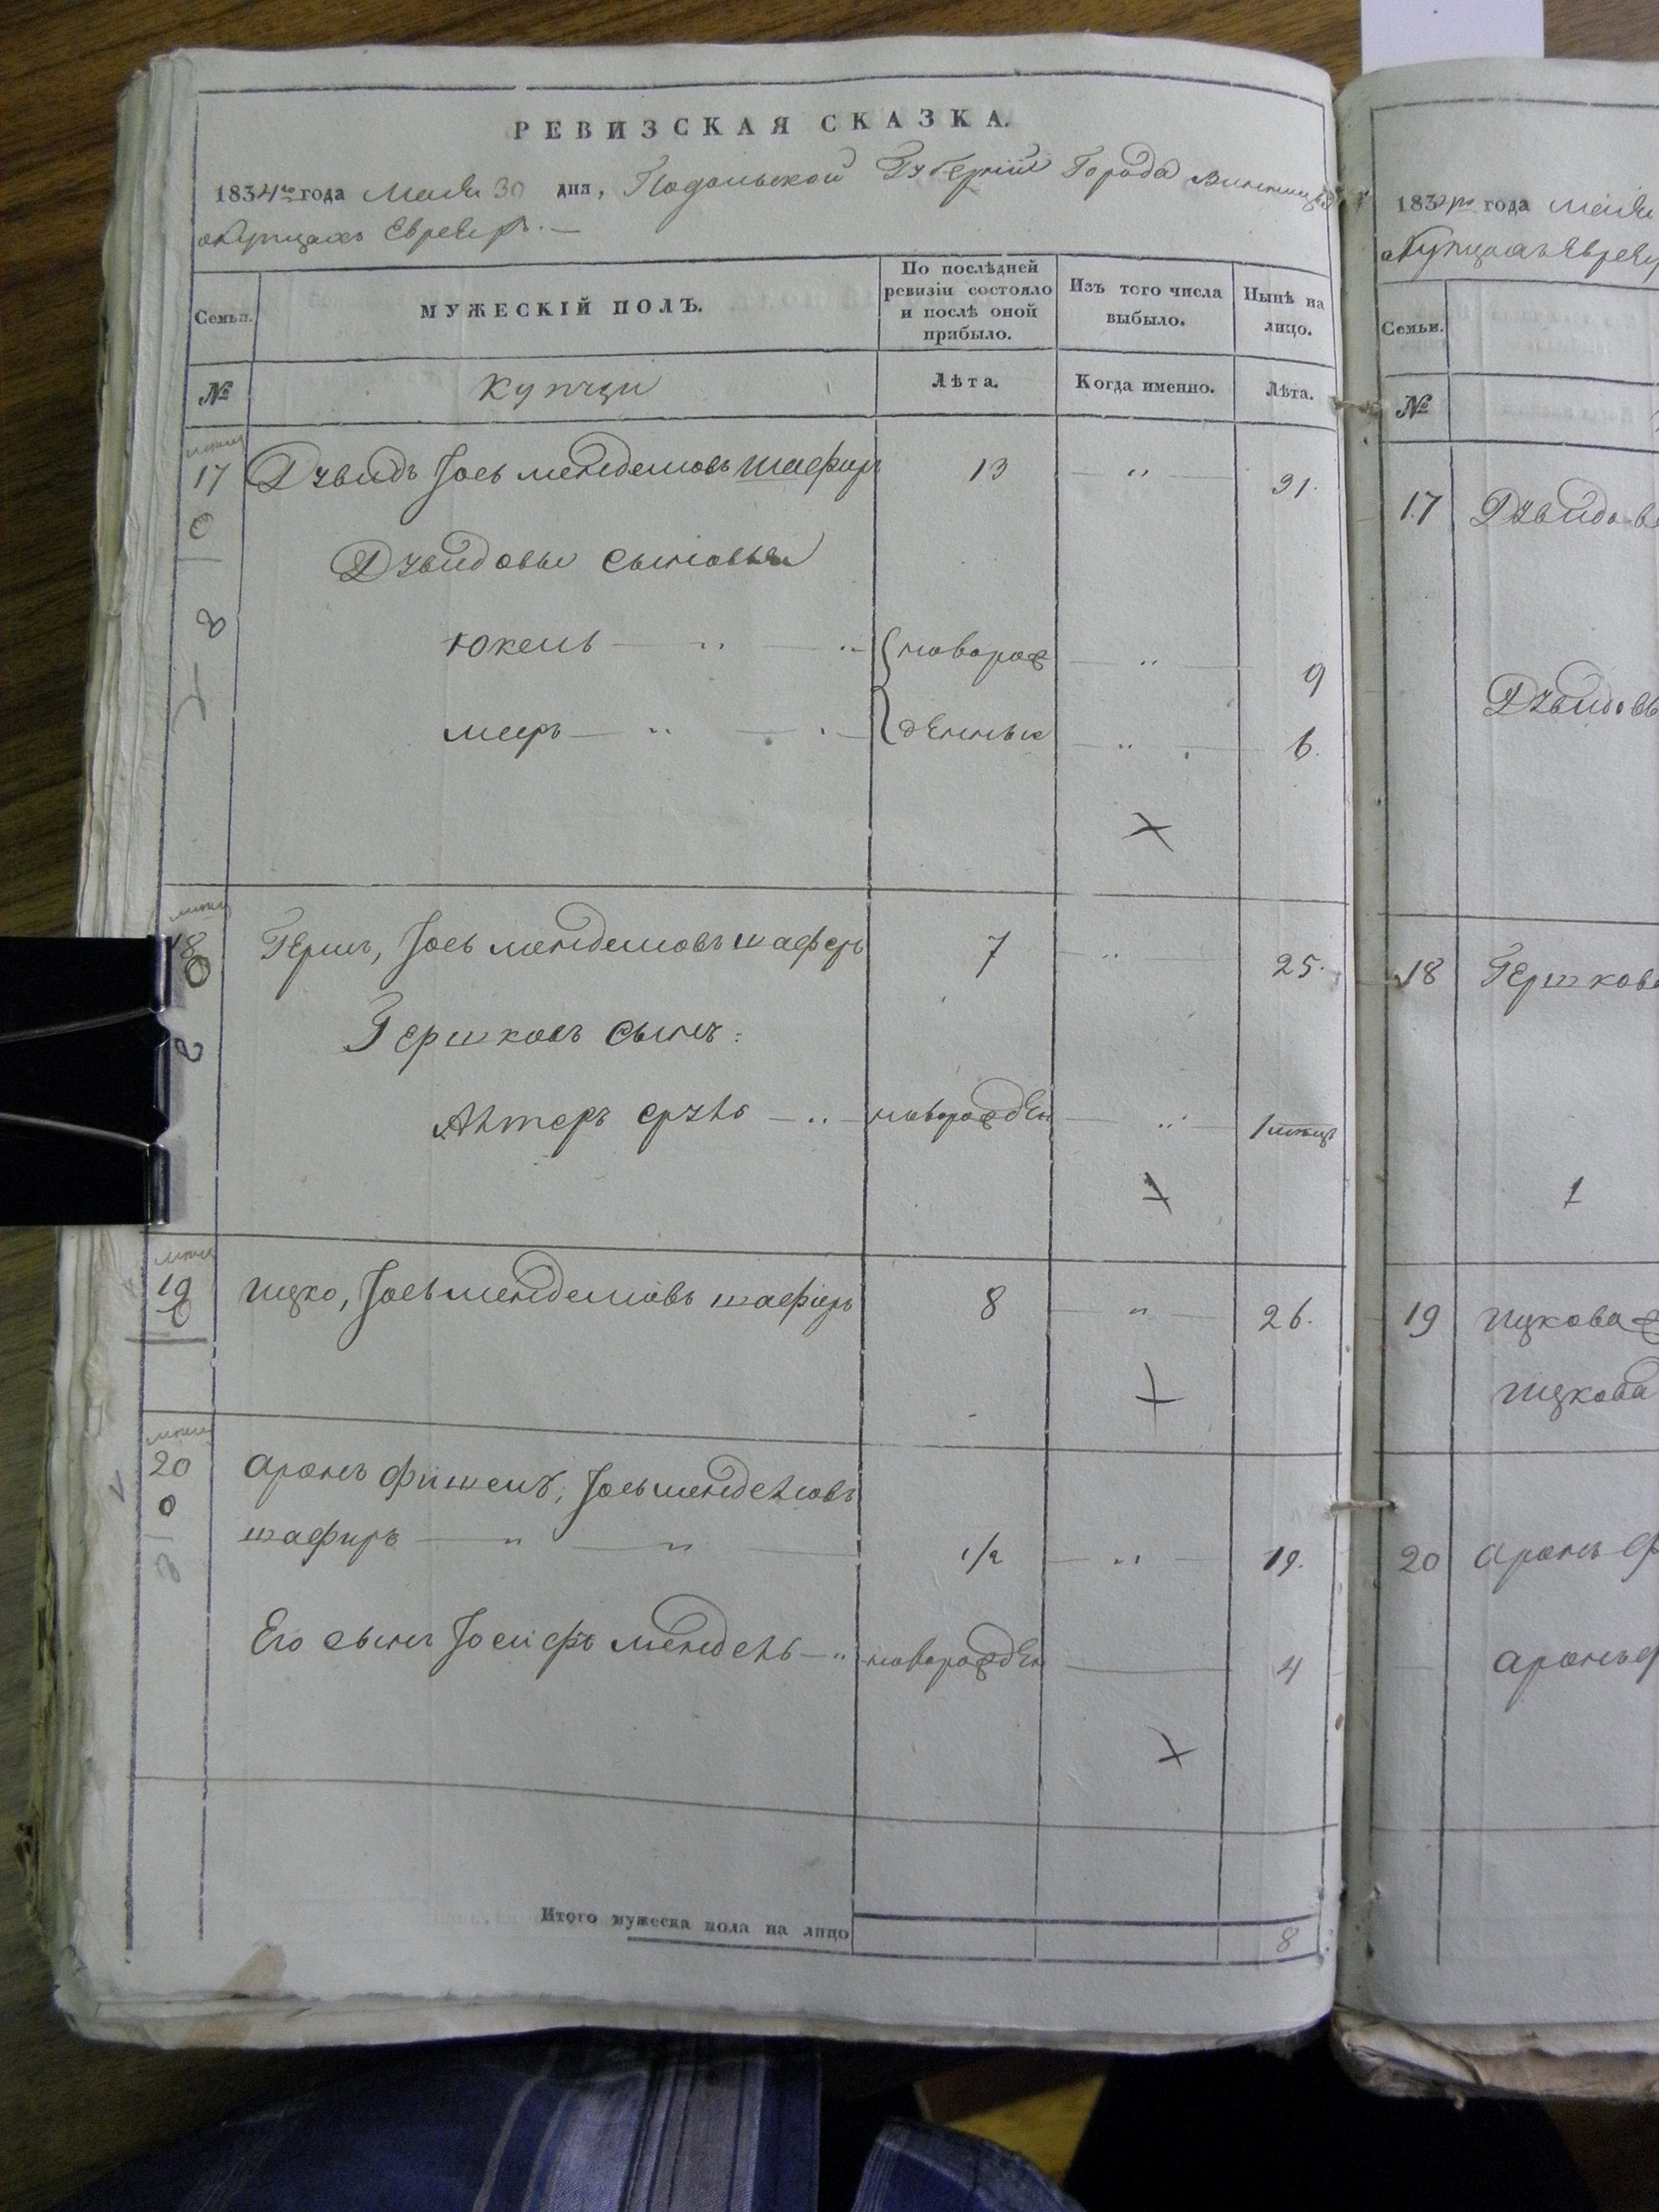 РЕВИЗСКАЯ СКАЗКА.
1834го года Маія 30 дня, Подольской Губерніи Города Винницы
о Купцахъ Евреяхъ. —
Семьи.
МУЖЕСКІЙ ПОЛЪ.
По послѣдней ревизіи состояло и послѣ оной прибыло.
Изъ того числа выбыло.
Нынѣ на лицо.
№ Купцы Лѣта. Когда именно. Лѣта.
17 Дувидъ Іось Менделювъ Шафиръ 13 — „ — 31.
Дувидовы сыновья
Юкель — „ — „ новорож — „ — 9
Мееръ — „ — денные — „ — 6.
18 Гершъ, Іось Менделювъ Шафиръ 7 — „ — 25.
Гершковъ сынъ:
Антеръ Сруль — „ — новорожден — „ — 1
19 Ицко, Іось Менделювъ Шафиръ 8 — „ — 26.
20 Аронъ Фишель, Іось Менделювъ
Шафиръ — „ — „ — 1/2 — „ — 19.
Его сынъ Іосифъ Мендель — „ новорожден — 4
Итого мужеска пола на лицо 8
1834го года Маія
о Купцахъ Еврея
Семьи.
№
17 Дувидов
Дувидовы
18 Гершков
1
19 Ицкова
Ицкова
20 Аронъ Ф
Аронъ Ф